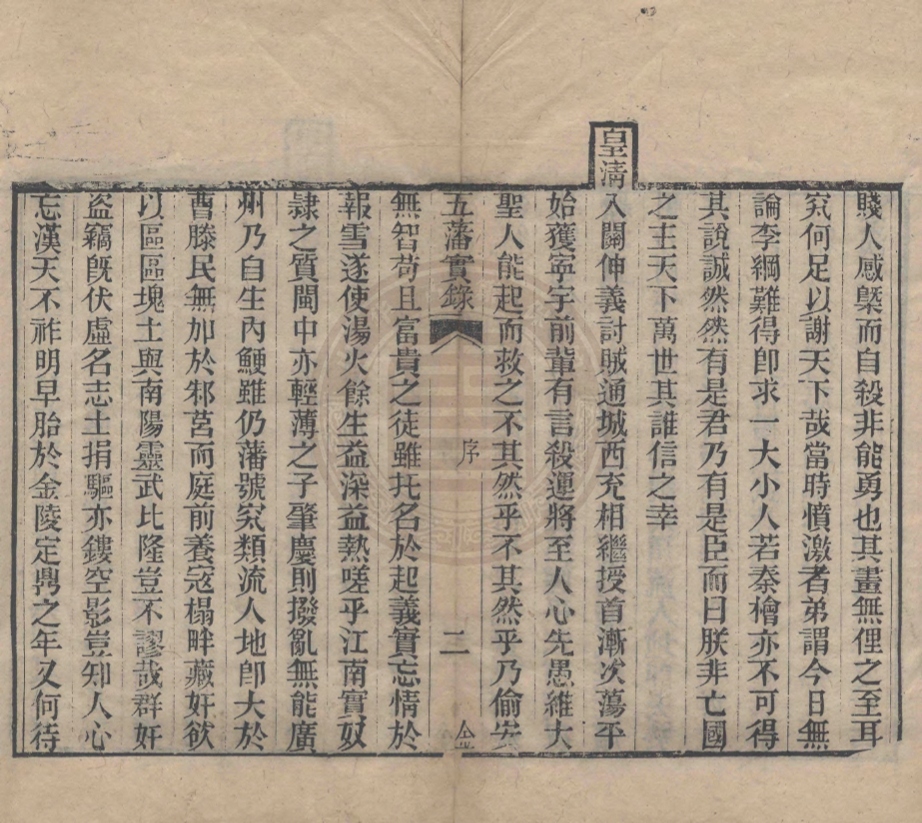 賤人感槩而自殺非能勇也其畫無俚之至耳
究何足以謝天下哉當時憤激者弟謂今日無
論李綱難得卽求一大小人若秦檜亦不可得
其說誠然然有是君乃有是臣而曰朕非亡國
之主天下萬世其誰信之幸
皇清入關伸義討賊通城西充相繼授首漸次蕩平
始獲寧宇前輩有言殺運將至人心先愚維大
聖人能起而救之不其然乎不其然乎乃偷安
五藩實錄 序 二
無智苟且富貴之徒雖托名於起義實忘情於
報雪遂使湯火餘生益深益熱嗟乎江南實奴
隷之質閩中亦輕薄之子肇慶則撥亂無能廣
州乃自生內鯁雖仍藩號究類流人地卽大於
曹滕民無加於邾莒而庭前養寇榻畔藏奸欲
以區區塊土與南陽靈武比隆豈不謬哉群奸
盜竊旣伏虛名志士捐驅亦鏤空影豈知人心
忘漢天不祚明早胎於金陵定鼎之年又何待